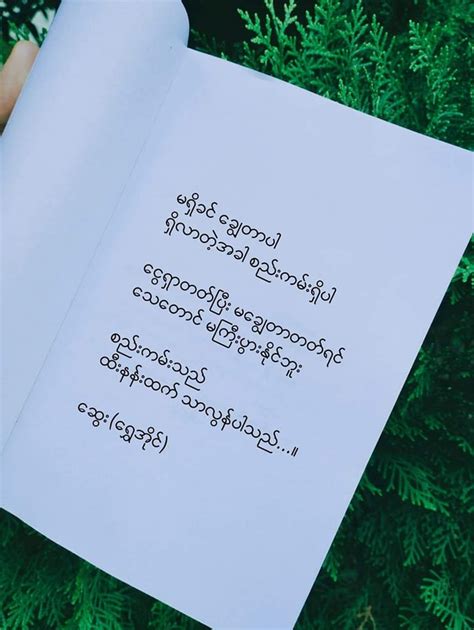 မရှိခင် ချွေတာပါ
ရှိလာတဲ့အခါ စည်းကမ်းရှိပါ
ငွေရှာတတ်ပြီး မချွေတာတတ်ရင်
သေတောင် မကြီးပွားနိုင်ဘူး
စည်းကမ်းသည်
ထီးနန်းထက် သာလွန်ပါသည်...။
ဆွေး(ရွှေအိုင်)